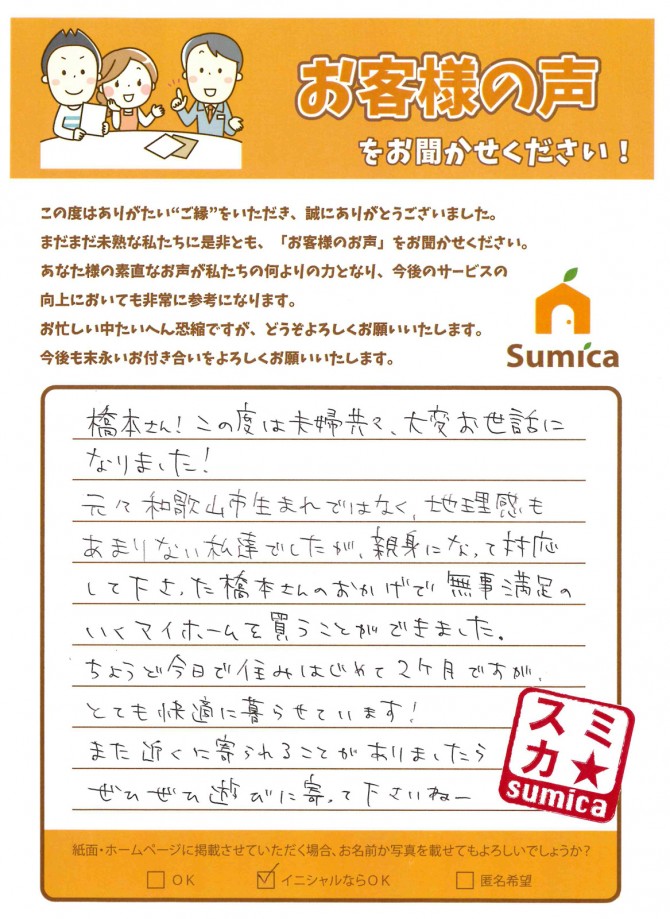 お客様の声
をお聞かせください！
この度はありがたい“ご縁”をいただき、誠にありがとうございました。
まだまだ未熟な私たちに是非とも、「お客様のお声」をお聞かせください。
あなた様の素直なお声が私たちの何よりの力となり、今後のサービスの
向上においても非常に参考になります。
お忙しい中たいへん恐縮ですが、どうぞよろしくお願いいたします。
今後も末永いお付き合いをよろしくお願いいたします。
Sumica
橋本さん！この度は夫婦共々、大変お世話に
なりました！
元々和歌山市生まれではなく、地理感も
あまりない私達でしたが、親身になって対応
して下さった橋本さんのおかげで無事満足の
いくマイホームを買うことができました。
ちょうど今日で住みはじめて2ケ月ですが、
とても快適に暮らせています！
また近くに寄られることがありましたら
ぜひぜひ遊びに寄って下さいねー
スミ
カ★
sumica
紙面・ホームページに掲載させていただく場合、お名前か写真を載せてもよろしいでしょうか？
□ OK ☑ イニシャルならOK □ 匿名希望